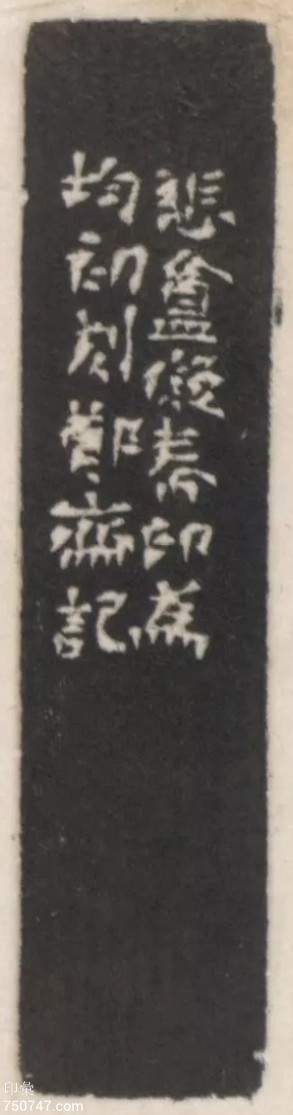 悲盦儗秦印為
均初刻鄭齋記
印彙
750747.com